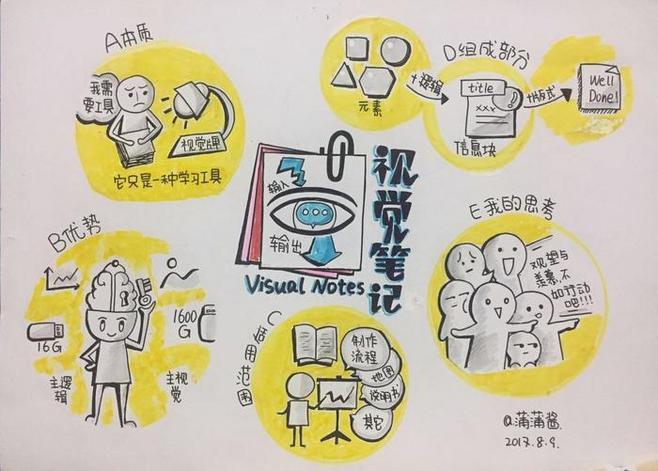 A本质
我需
要工具
视觉牌
它只是一种学习工具
D组成部分
元素
+逻辑
title
xxx
信息块
+版式
Well
Done!
输入
输出
视觉笔记
Visual Notes
B优势
16G
1600
G
主逻
辑
主视
觉
C使用范围
制作
流程
地图
说明书
其它
E我的思考
观望与
羡慕,不
如行动
吧!!!
@蒲蒲酱.
2017.8.9.